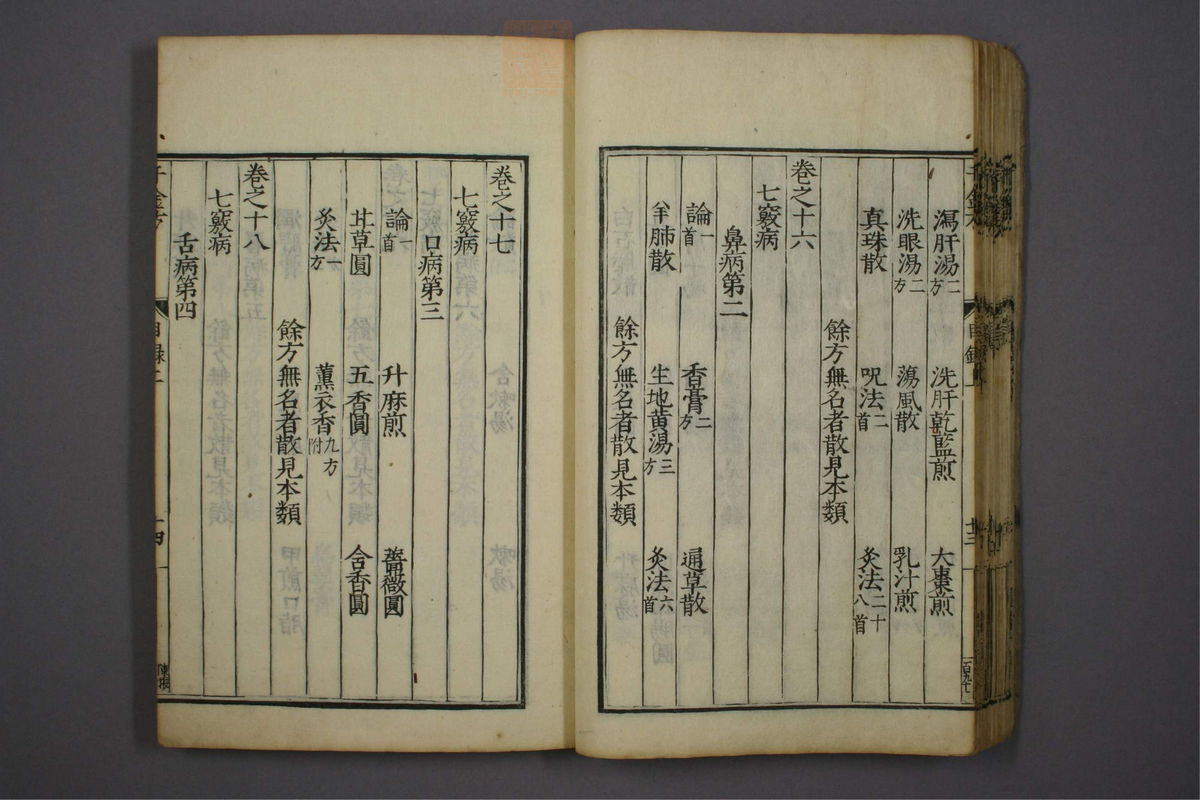 瀉肝湯二方 洗肝乾藍煎 大棗煎
洗眼湯二方 蕩風散 乳汁煎
真珠散 呪法二首 灸法二十八首
餘方無名者散見本類
卷之十六
七竅病
鼻病第二
論一首 香膏二方 通草散
羊肺散 生地黃湯三方 灸法六首
餘方無名者散見本類
卷之十七
七竅病
口病第三
論一首 升麻煎 薔薇圓
甘草圓 五香圓 含香圓
灸法一方 薰衣香九方附
餘方無名者散見本類
卷之十八
七竅病
舌病第四
千金方 目錄二 十四